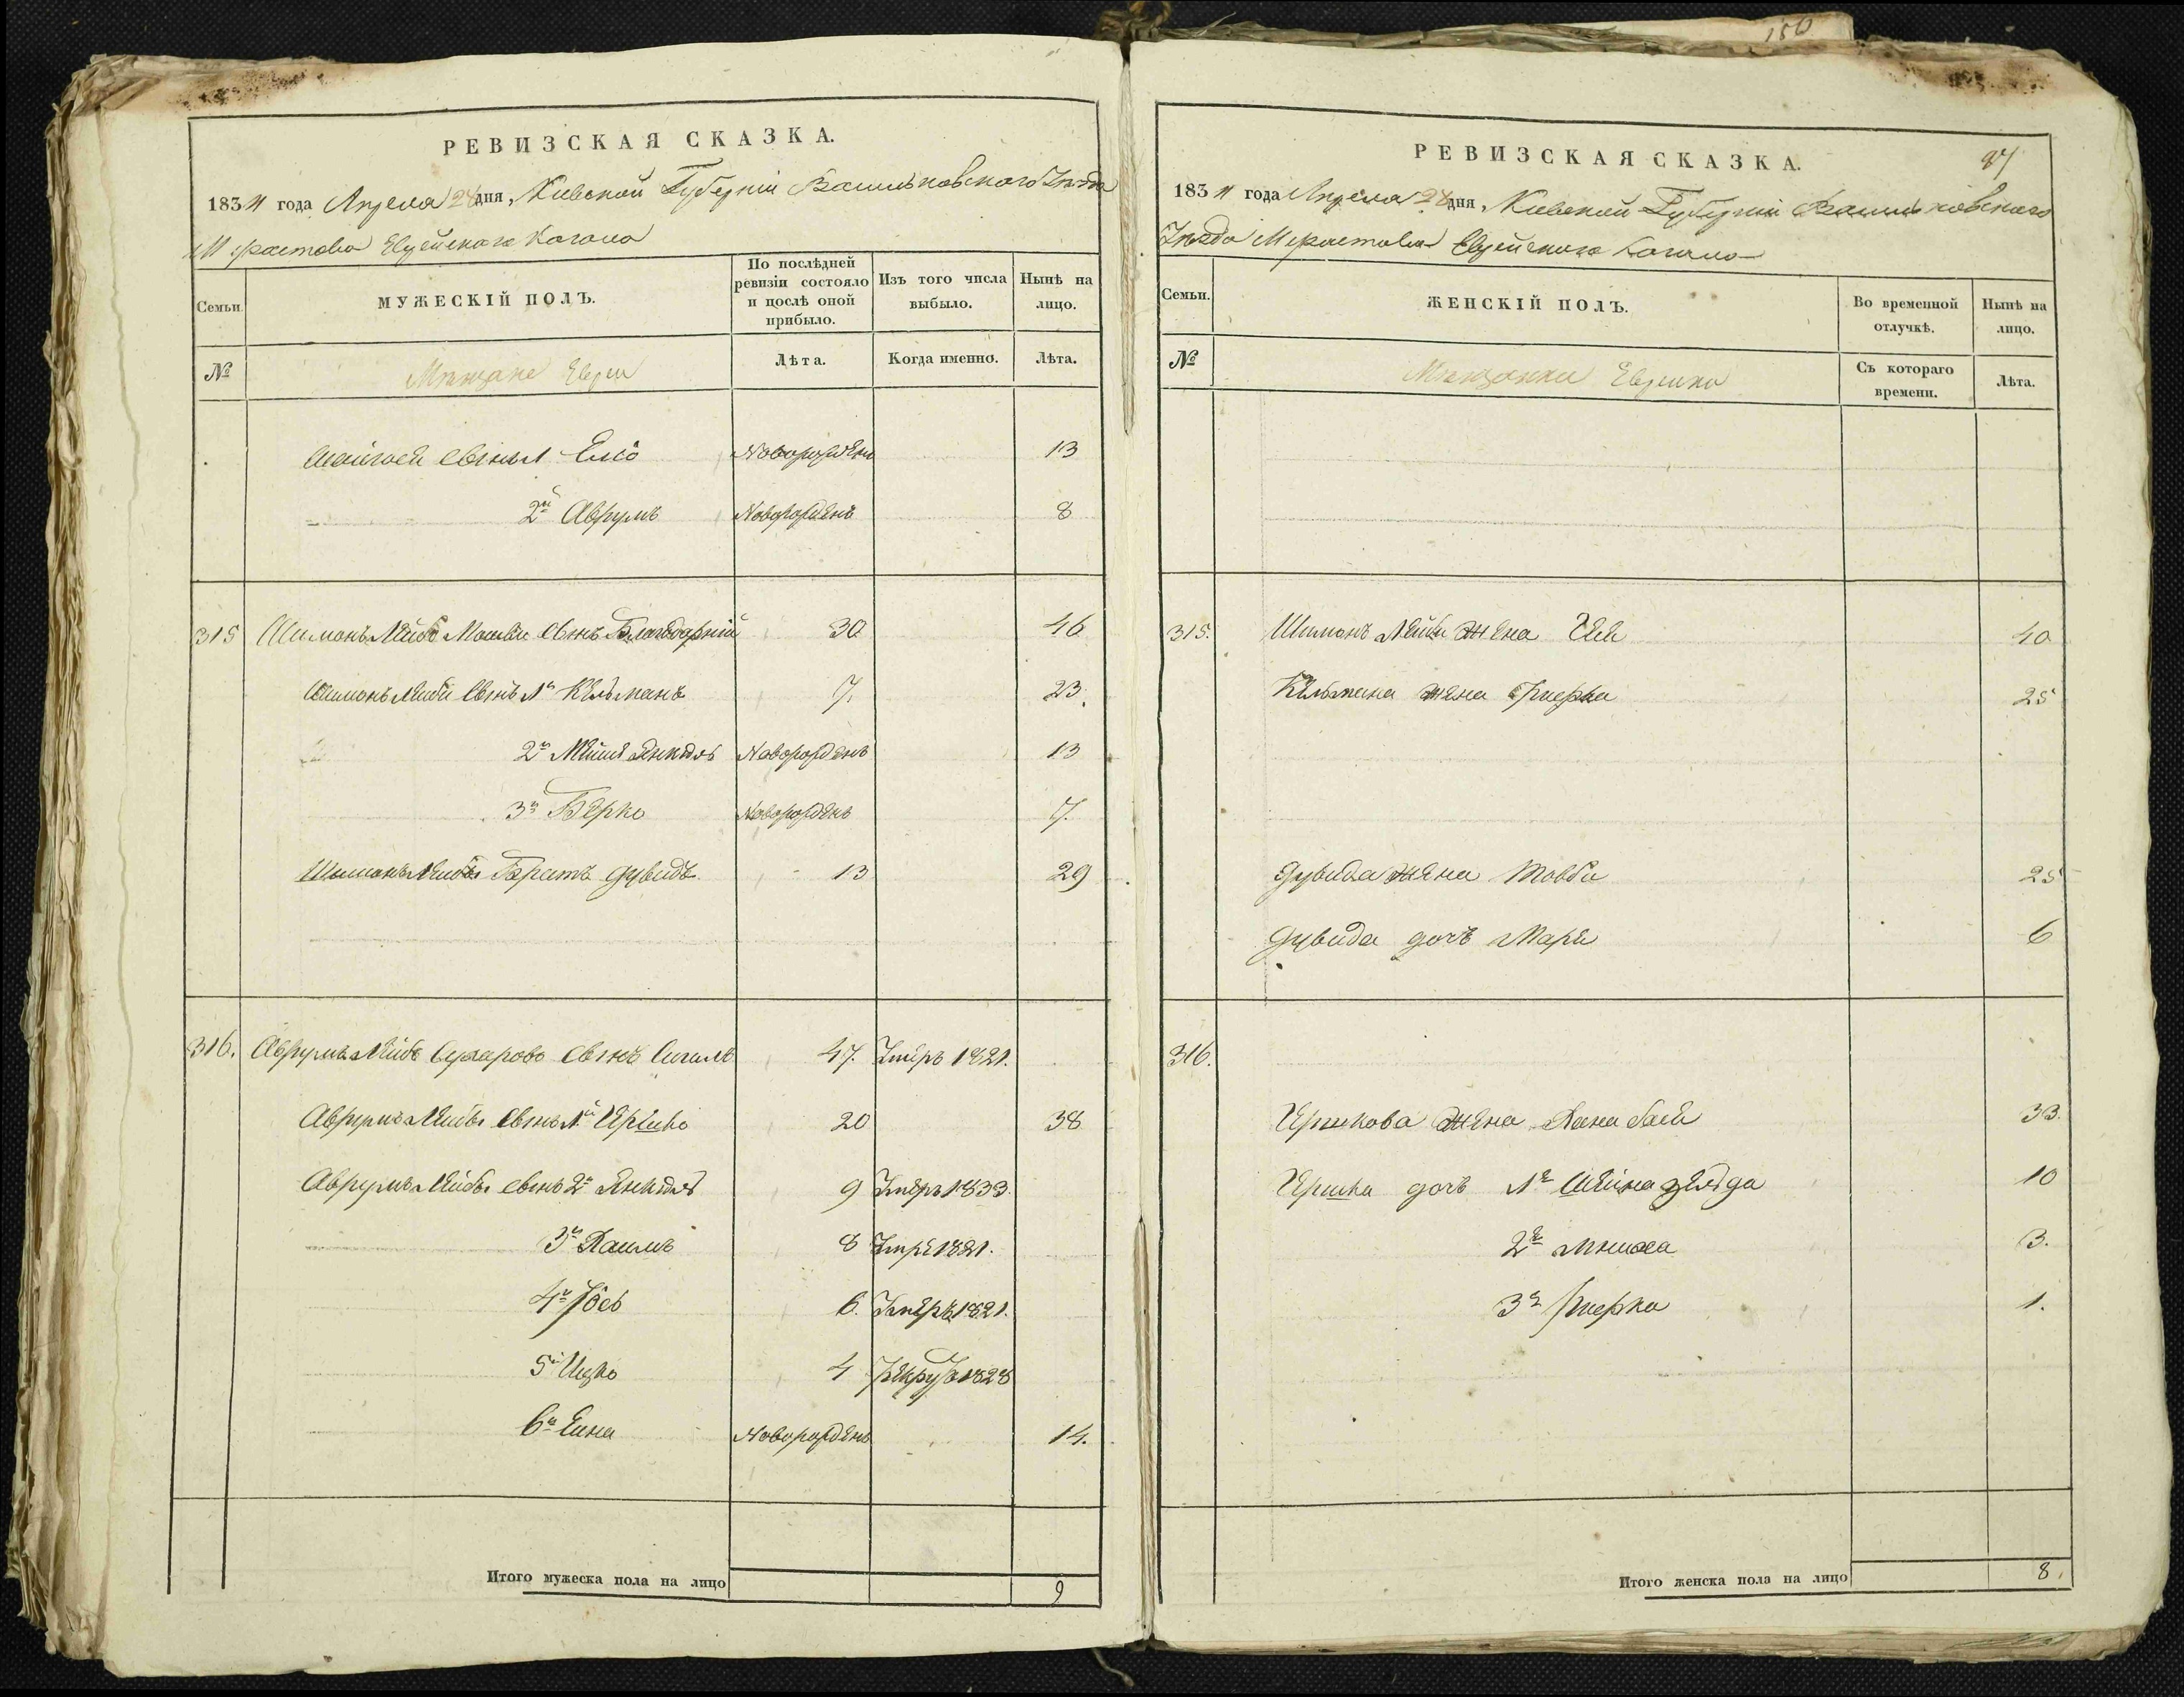 150
РЕВИЗСКАЯ СКАЗКА.
1834 года Апреля 24 дня, Киевской Губерніи Васильковского Уезда
М Фастова Еврейского Кагала
Семьи.
МУЖЕСКІЙ ПОЛЪ.
По послѣдней ревизіи состояло и послѣ оной прибыло.
Изъ того числа выбыло.
Нынѣ на лицо.
№
Мѣщане Евреи
Лѣта.
Когда именно.
Лѣта.
сынъ 1 Новорожденъ 13
2й Аврумъ Новорожденъ 8
315 Шимонъ Лейбъ Мошки сынъ 30 46
Шимонъ Лейби сынъ 1й Кельманъ 7. 23.
2й Янкель Новорожденъ 13
3й Берко Новорожденъ 7.
Шимонъ Лейбы Братъ Дувидъ 13 29
316. Аврумъ Лейбъ сынъ 47. Умеръ 1821.
Аврумъ Лейбы сынъ 1й Гершко 20 38
Аврумъ Лейбы сынъ 2й Янкель 9 Умеръ 1833.
3й Хаимъ 8 Умре 1821.
4й Іось 6. Умеръ 1821.
5й Ицко 4 Рекрутъ 1828
6й Новорожденъ 14.
Итого мужеска пола на лицо 9
РЕВИЗСКАЯ СКАЗКА.
87
1834 года Апреля 24 дня, Киевской Губерніи Васильковского
Уезда М Фастова Еврейского Кагала
Семьи.
ЖЕНСКІЙ ПОЛЪ.
Во временной отлучкѣ.
Нынѣ на лицо.
№
Мѣщанки Еврейки
Съ котораго времени.
Лѣта.
315. Шимонъ Лейби жена 40
Кельмана жена Ривка 25
Дувида жена Товба 25
Дувида дочь 6
316.
Гершкова жена Хана Бася 33.
Гершка дочь 1я Шейна Зелда 10
2я 3.
3я Ривка 1.
Итого женска пола на лицо 8.